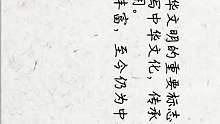 华文明的重要标志
写中华文化，传承
明。
丰富，至今仍为中